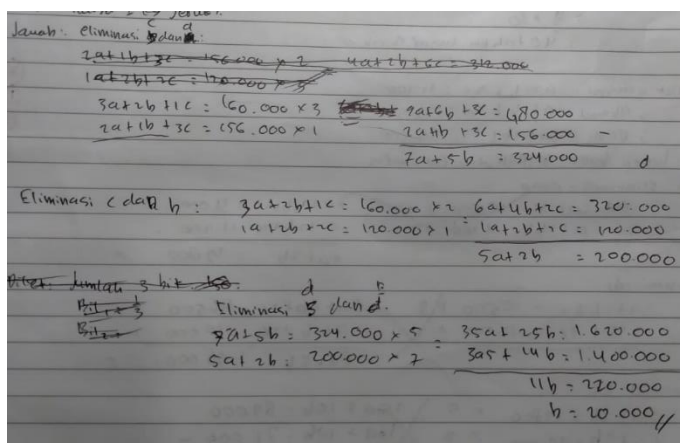 Jawab: eliminasi c dan a:
2a+1b+3c = 156.000 x 2 4a+2b+6c = 312.000
1a+2b+2c = 120.000 x 3
3a+2b+1c = 160.000 x 3 9a+6b+3c = 480.000
2a+1b+3c = 156.000 x 1 2a+1b+3c = 156.000 -
7a+5b = 324.000 d
Eliminasi c dan b : 3a+2b+1c = 160.000 x 2 6a+4b+2c = 320.000
1a+2b+2c = 120.000 x 1 1a+2b+2c = 120.000
5a+2b = 200.000
Jumlah 3 bit
d b
Eliminasi 3 dan d.
7a+5b = 324.000 x 5 = 35a+25b = 1.620.000
5a+2b = 200.000 x 7 3a5+14b = 1.400.000
11b = 220.000
b = 20.000 //